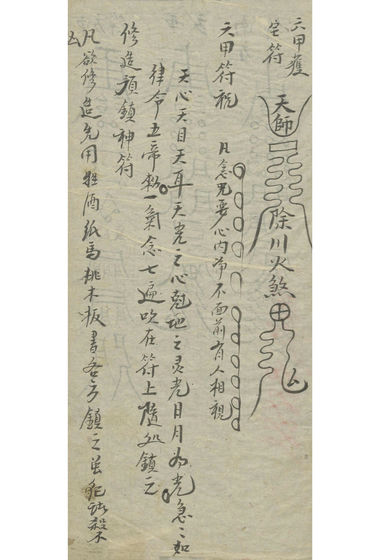 六甲護
宅符
天師
除川火煞
甲
六甲符祝 凡念咒要心內 不面前有人相視
天心天目天耳天光之心 地之灵光日月为光急之如
律令五帝勅一氣念七遍吹在符上隨処鎮之
修造預鎮神符
凡欲修造先用牲酒紙馬桃木板書各方鎮之 殺不